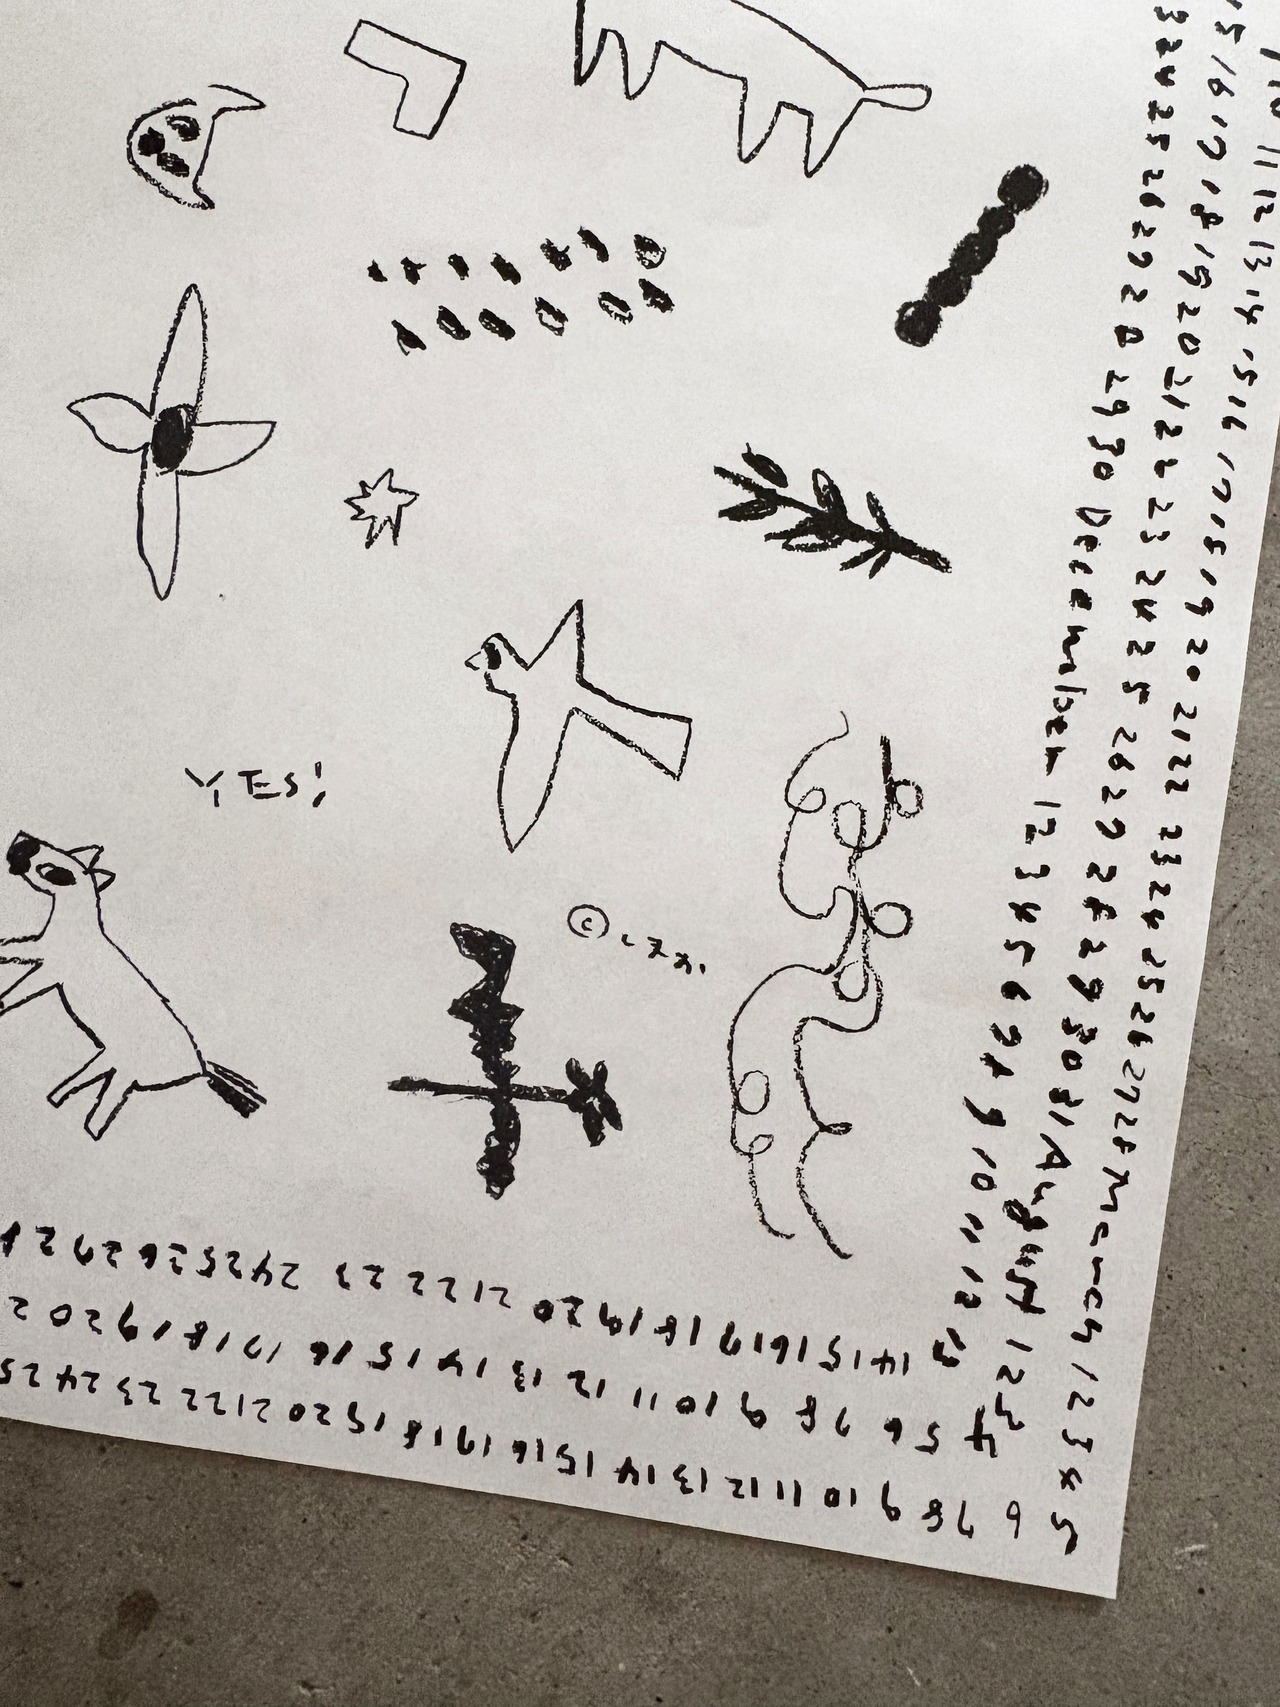 YES!
10 11 12 13 14 15 16 17 18 19 20 21 22 23 24 25 26 27 28 March 1 2 3 4 5
6 7 8 9 10 11 12 13 14 15 16 17 18 19 20 21 22 23 24 25
15 16 17 18 19 20 21 22 23 24 25 26 27 28 29 30 31 August 1 2 3
4 5 6 7 8 9 10 11 12 13 14 15 16 17 18 19 20 2
3 24 25 26 27 28 29 30 December 1 2 3 4 5 6 7 8 9 10 11 12 13
14 15 16 17 18 19 20 21 22 23 24 25 26 27 28